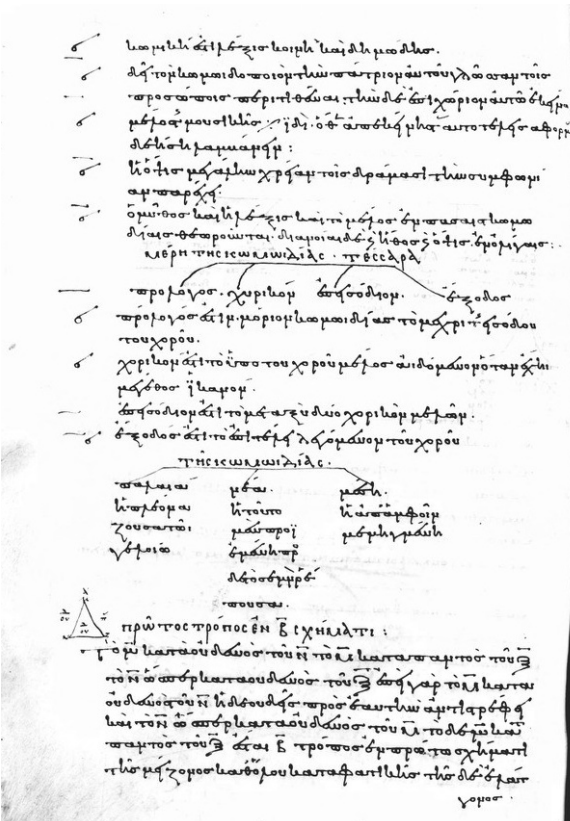 κωμική ἐστι λέξις κοινὴ καὶ δημώδης.
δεῖ τὸν κωμωιδοποιὸν τὴν πάτριον αὐτοῦ γλῶσσαν τοῖς
προσώποις περιτιθέναι· τὴν δὲ ἐπιχώριον αὐτῶ ἐκείνω
μέλος μουσικῆς ἴδι ὅθ ἀπ' ἐκείνης αὐτοτελεῖς ἀφορμ
δεήσει λαμβάνειν:
ἡ ὄψις μεγάλην χρείαν τοῖς δράμασι τὴν συμφωνί
αν παρέχει
ὁ μῦθος καὶ ἡ λέξις καὶ τὸ μέλος ἐν πάσαις κωμω
δίαις θεωροῦνται· διάνοιαι δὲ ϗ ἦθος ϗ ὄψις ἐν ὀλίγαις:
ΜΕΡΗ ΤΗΣ ΚΩΜΩΙΔΙΑΣ · ΤΕΣΣΑΡΑ
πρόλογος · χορικόν ἐπεισόδιον. ἔξοδος
πρόλογός ἐστιν μόριον κωμωιδίας τὸ μέχρι τῆς εἰσόδου
τοῦ χοροῦ.
χορικόν ἐστι τὸ ὑπὸ τοῦ χοροῦ μέλος ἀιδόμενον ὅταν ἔχηι
μέγεθος ἱκανόν.
ἐπεισόδιόν ἐστι τὸ μεταξὺ δύο χορικῶν μελῶν.
ἔξοδός ἐστι τὸ ἐπὶ τέλει λεγόμενον τοῦ χοροῦ
ΤΗΣ ΚΩΜΩΙΔΙΑΣ ·
παλαιά μέση. νέα
ἡ πλεονά ἡ τοῦτο ἡ ἐπ' ἀμφοῖν
ζουσα τῶι μὲν προϊ μεμιγμένη
γελοίω εμένη πρ
δὲ τὸ σεμνὸν ῥέ
πουσα.
ΠΡΩΤΟΣ ΤΡΟΠΟΣ ΕΝ Β ΣΧΗΜΑΤΙ:
κατὰ οὐδενὸς τοῦ Ν τὸ Μ κατὰ παντὸς τοῦ Ξ
τὸ Ν ἄρα κατὰ οὐδενὸς τοῦ Ξ ἐπεὶ γὰρ τὸ Μ κατὰ
οὐδενὸς τοῦ Ν ἡ δὲ οὐδεὶς πρὸς ἑαυτὴν ἀντιστρέφει
καὶ τὸ Ν ἄρα κατὰ οὐδενὸς τοῦ Μ τὸ δὲ Μ κατὰ
παντὸς τοῦ Ξ ἔσται Β τρόπος ἐν πρώτω σχήματι
τῆς μείζονος καθόλου καταφατικῆς τῆς δὲ ἐλάτ
τονος.